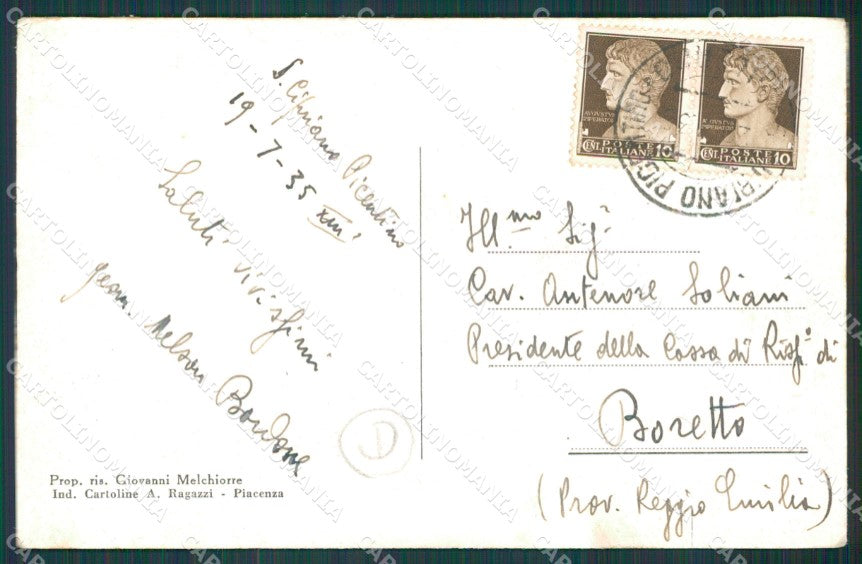 S. Cipriano Picentino
19-7-35 XIII.
Saluti vivissimi
geom. Nelson Bordone
Prop. ris. Giovanni Melchiorre
Ind. Cartoline A. Ragazzi - Piacenza
D
AVGVSTVS
IMPERATOR
POSTE
CENT. ITALIANE 10
AVGVSTVS
IMPERATOR
POSTE
CENT. ITALIANE 10
Ill.mo Sigr
Cav. Antenore Soliani
Presidente della Cassa di Risp.o di
Boretto
(Prov. Reggio Emilia)
CARTOLINOMANIA